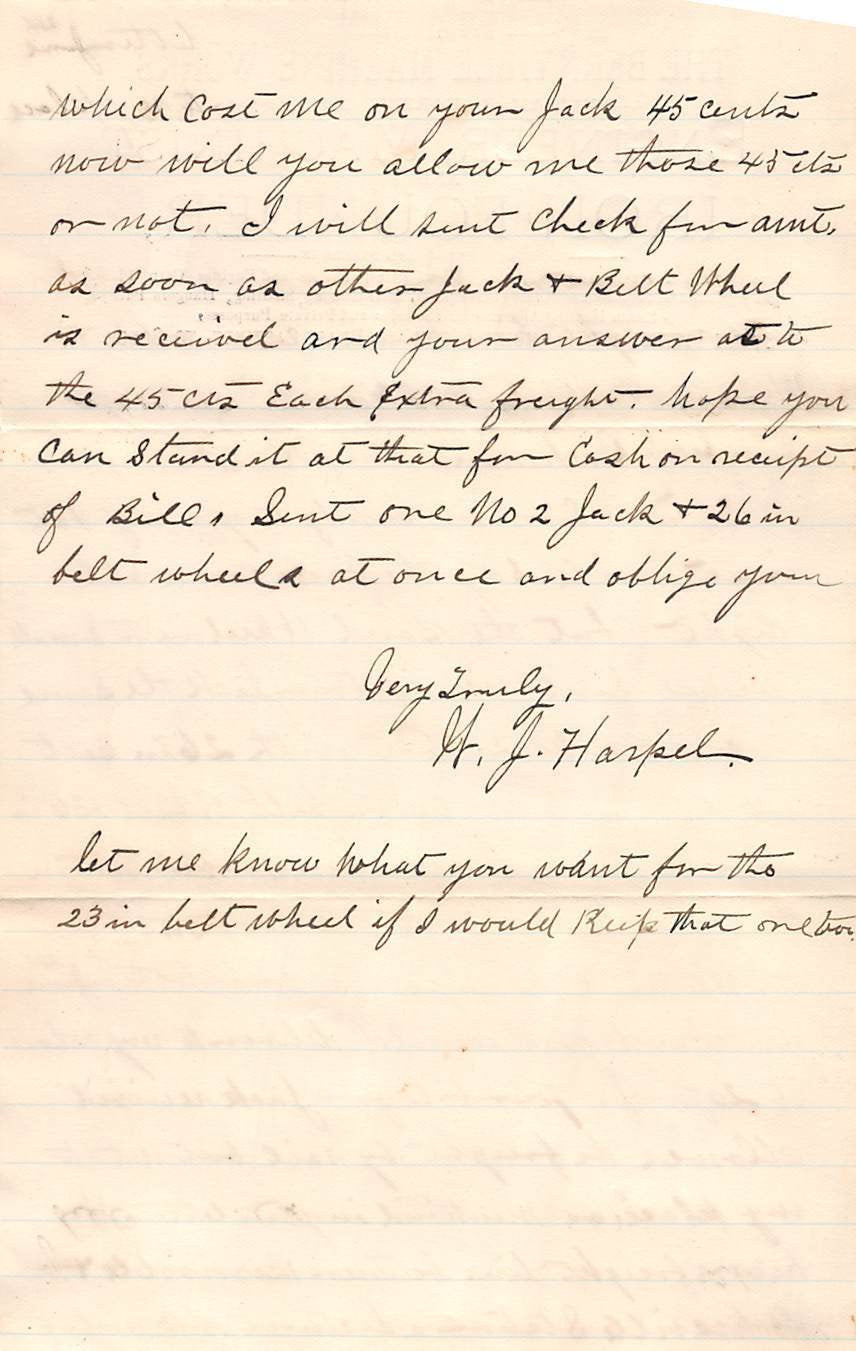 which Cost me on your Jack 45 cents
now will you allow me those 45 cts
or not. I will sent Check for amt.
as soon as other Jack & Belt Wheel
is received and your answer as to
the 45 cts Each Extra freight. hope you
can Stand it at that for Cash on receipt
of Bill, Sent one No 2 Jack & 26 in
belt wheels at once and oblige your
Very Truly,
W. J. Harpel.
let me know What you want for the
23 in belt wheel if I would Keep that one too.